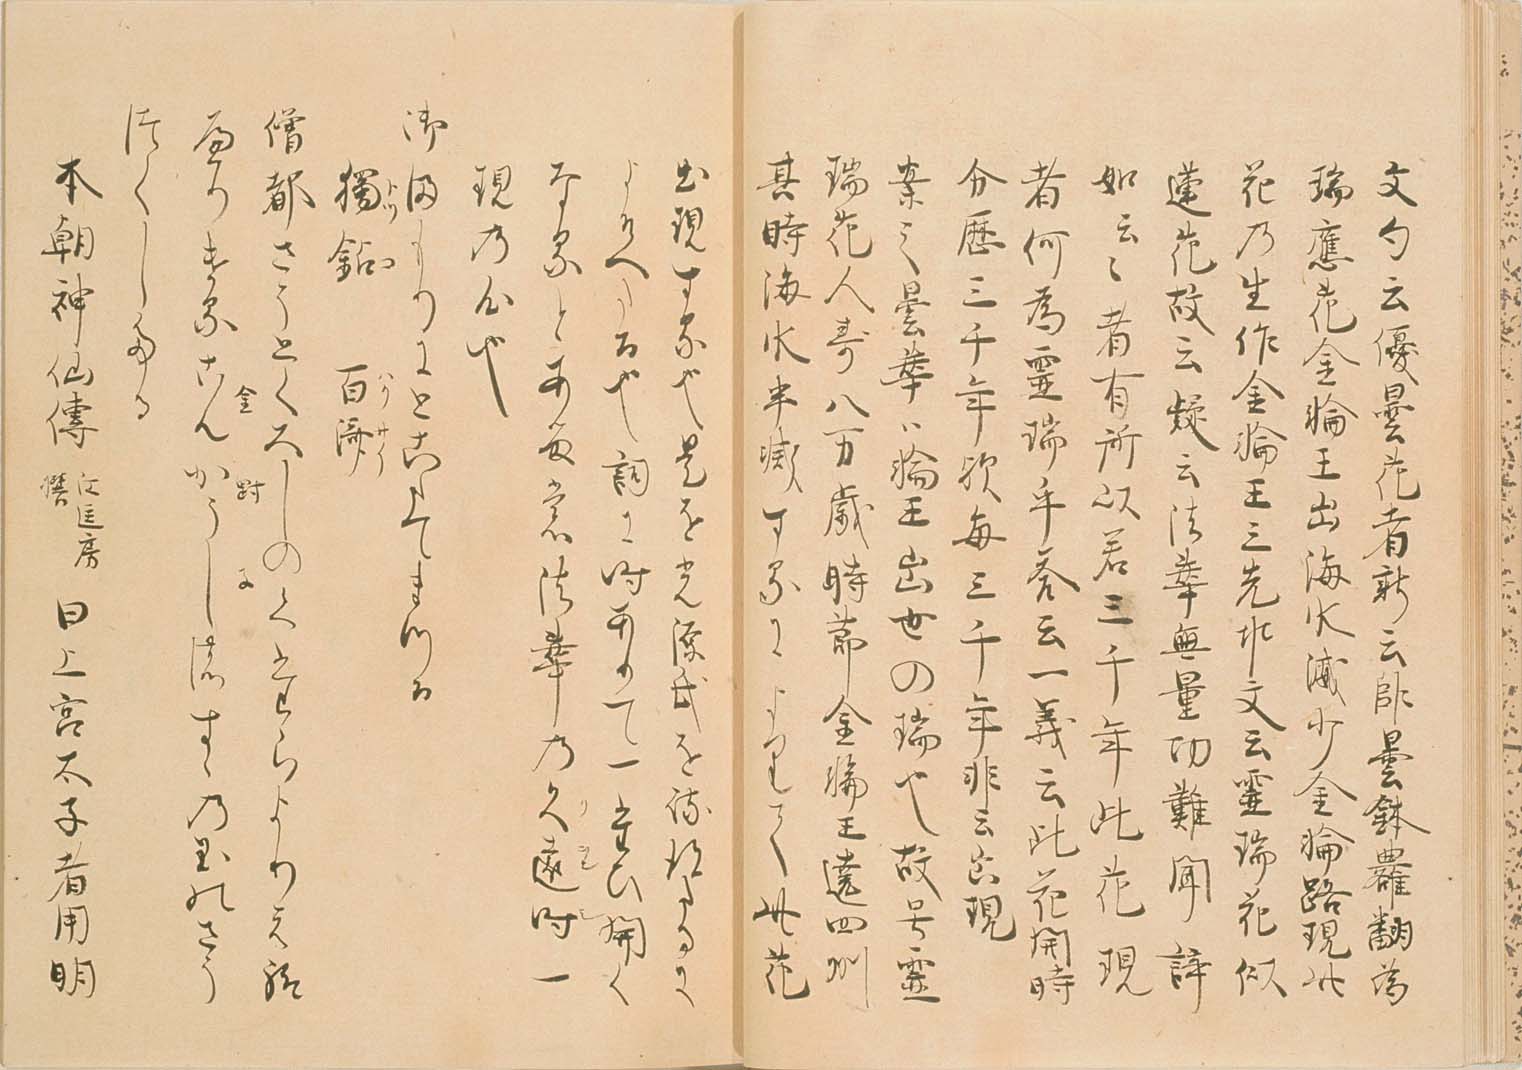 文句云優曇花者新云欝曇鉢羅翻為
瑞應花金輪王出海水減少金輪路現此
花乃生作金輪王之先兆文云靈瑞花似
蓮花故云疑云法華無量功難聞諦
如云〻者有所以若三千年此花現
者何為靈瑞乎答云一義云此花開時
分歴三千年欤毎三千年非云出現
案之曇華ハ輪王出世の瑞也故号靈
瑞花人寿八万歳時節金輪王遶四州
其時海水半減するによりて此花
出現する也是を光源氏を
よそへたる也詞に時ありて一たひ開く
なるとある 法華の久遠時一
現の心也
御まもりにとこたてまつる
獨鈷 百済
僧都さうとくたいしのくたらよりえ給
へりけるこんかうしのすゝの玉のさう
そくしたる
本朝神仙傳 江匡房撰 曰上宮太子者用明